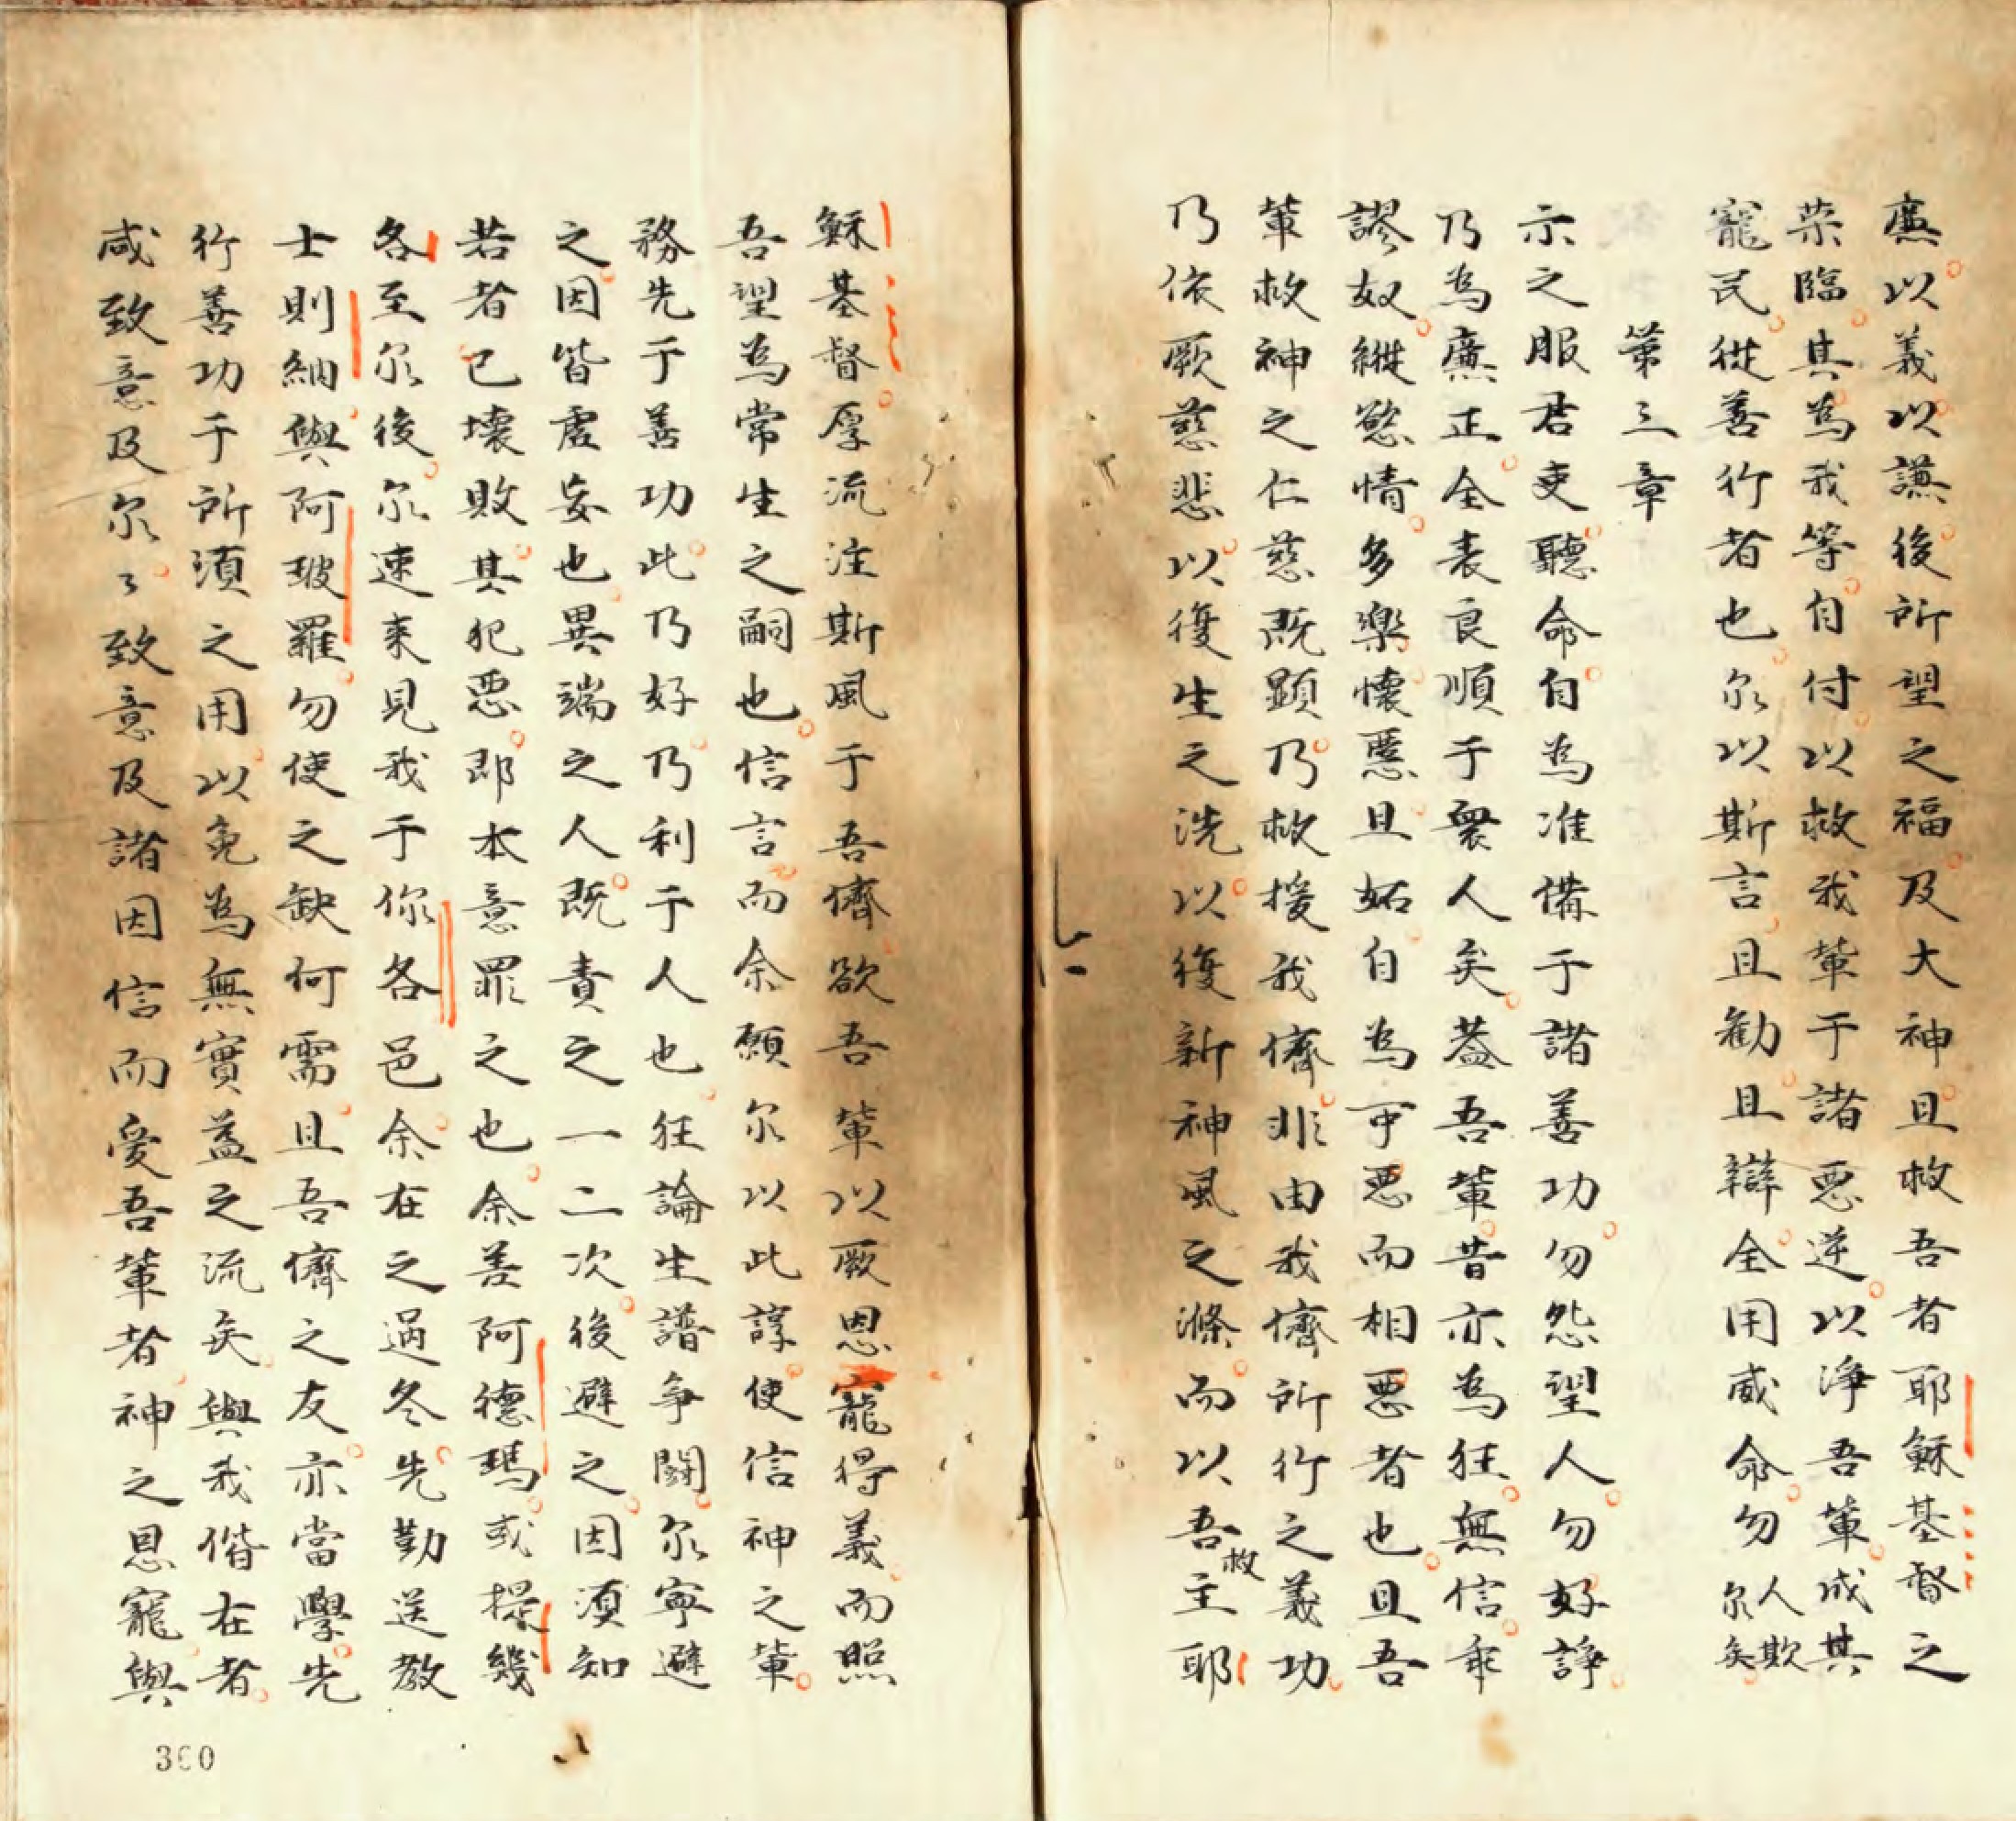 廉以義以謙後所望之福及大神且救吾者耶穌基督之
榮臨其為我等自付以救我輩于諸惡逆以淨吾輩成其
寵民從善行者也尔以斯言且勸且辯全用威命勿人欺尔矣
第三章
示之服君吏聽命自為准備于諸善功勿怨望人勿好諍
乃為廉正全表良順于眾人矣蓋吾輩昔亦為狂無信乖
謬奴縱慾情多樂懷惡且妬自為可惡而相惡者也且吾
輩救神之仁慈既顯乃救援我儕非由我儕所行之義功
乃依厥慈悲以復生之洗以復新神風之滌而以吾救主耶
穌基督厚流注斯風于吾儕欲吾輩以厥恩寵得義而照
吾望為常生之嗣也信言而余願尔以此諄使信神之輩
務先于善功此乃好乃利于人也狂論生譜爭鬪尔寧避
之因皆虛妄也異端之人既責之一二次後避之因須知
若者已壞敗其犯惡即本意罪之也余善阿德瑪或提幾
各至尔後尔速來見我于你各邑余在之過冬先勤送教
士則納與阿玻羅勿使之缺何需且吾儕之友亦當學先
行善功于所須之用以免為無實益之流矣與我偕在者
咸致意及尔々致意及諸因信而愛吾輩者神之恩寵與
360